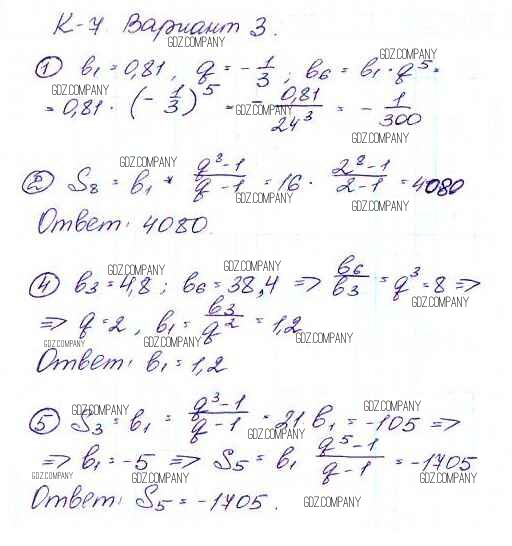 К-7 Вариант 3.
GDZ.COMPANY
① b₁ = 0,81, q = -1/3; b₆ = b₁ · q⁵ =
GDZ.COMPANY GDZ.COMPANY
= 0,81 · (-1/3)⁵ = - 0,81/243 = - 1/300
GDZ.COMPANY GDZ.COMPANY
GDZ.COMPANY
② S₈ = b₁ · q⁸-1/q-1 = 16 · 2⁸-1/2-1 = 4080
GDZ.COMPANY GDZ.COMPANY
Ответ: 4080.
GDZ.COMPANY GDZ.COMPANY
④ b₃ = 4,8; b₆ = 38,4 => b₆/b₃ = q³ = 8 =>
GDZ.COMPANY
=> q = 2, b₁ = b₃/q² = 1,2
GDZ.COMPANY GDZ.COMPANY GDZ.COMPANY
Ответ: b₁ = 1,2
GDZ.COMPANY GDZ.COMPANY
⑤ S₃ = b₁ = q³-1/q-1 = 21 b₁ = -105 =>
GDZ.COMPANY
=> b₁ = -5 => S₅ = b₁ q⁵-1/q-1 = -1705
GDZ.COMPANY GDZ.COMPANY GDZ.COMPANY
Ответ: S₅ = -1705.
GDZ.COMPANY